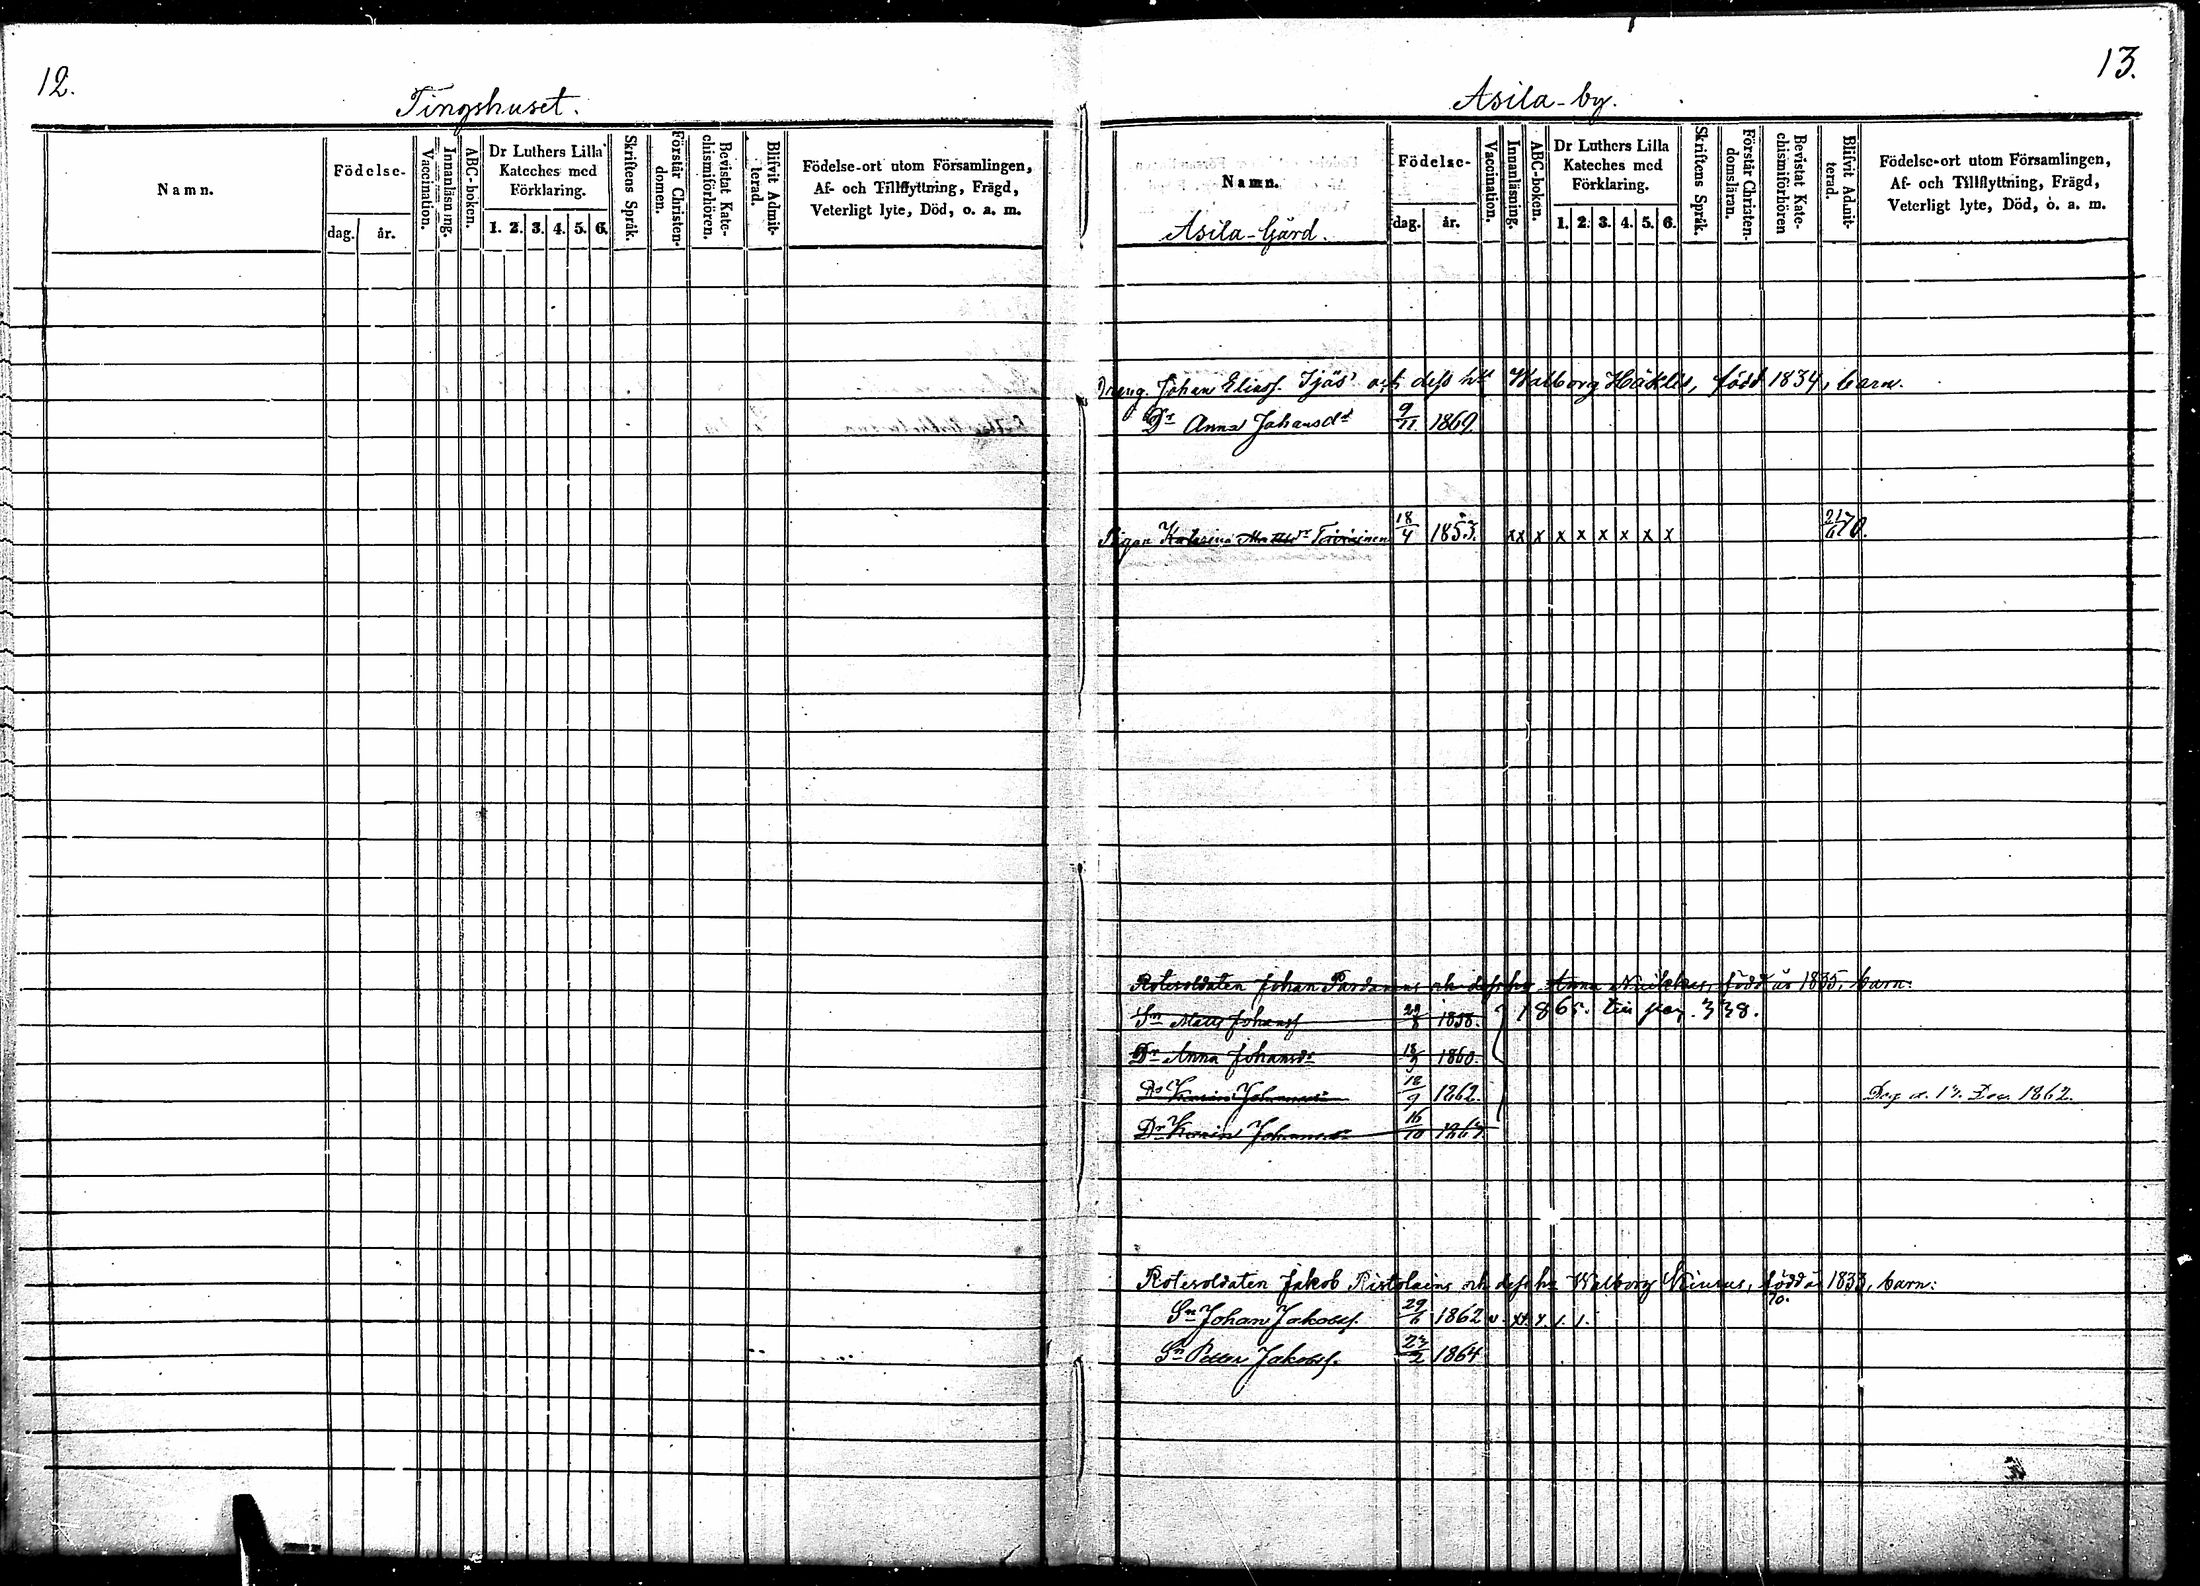 12.
Tingshuset.
Namn.
Födelse-
dag. år.
Vaccination.
Innanläsning.
ABC-boken.
Dr Luthers Lilla
Kateches med
Förklaring.
1. 2. 3. 4. 5. 6.
Skriftens Språk.
Förstår Christen-
domen.
Bevistat Kate-
chismiförhören.
Blifvit Admit-
terad.
Födelse-ort utom Församlingen,
Af- och Tillflyttning, Frägd,
Veterligt lyte, Död, o. a. m.
13.
Asila-by.
Namn.
Asila-Gård.
Födelse-
dag. år.
Vaccination.
Innanläsning.
ABC-boken.
Dr Luthers Lilla
Kateches med
Förklaring.
1. 2. 3. 4. 5. 6.
Skriftens Språk.
Förstår Christen-
domsläran.
Bevistat Kate-
chismiförhören
Blifvit Admit-
terad.
Födelse-ort utom Församlingen,
Af- och Tillflyttning, Frägd,
Veterligt lyte, Död, o. a. m.
Dreng. Johan Eliass. och dess Walborg född 1834, barn.
Dr Anna Johansdr 9/11. 1869.
Pigan Katarina 18/4 1853. xx x x x x x x x 70.
Rotesoldaten Johan och dess hu Anna född år 1835, barn:
Sn Matts Johanss 1858. 1865. till pag. 338.
Dr Anna Johansdr 1860.
Dr Johansdr 18/9 1862. Dec. 1862.
Dr Johansdr 16/10
Rotesoldaten Jakob Ristolain och dess hu Walborg född år 1833, barn:
70.
Sn Johan Jakobss. 29/6 1862 v. xx x. 1. 1.
Sn Petter Jakobss. 1864